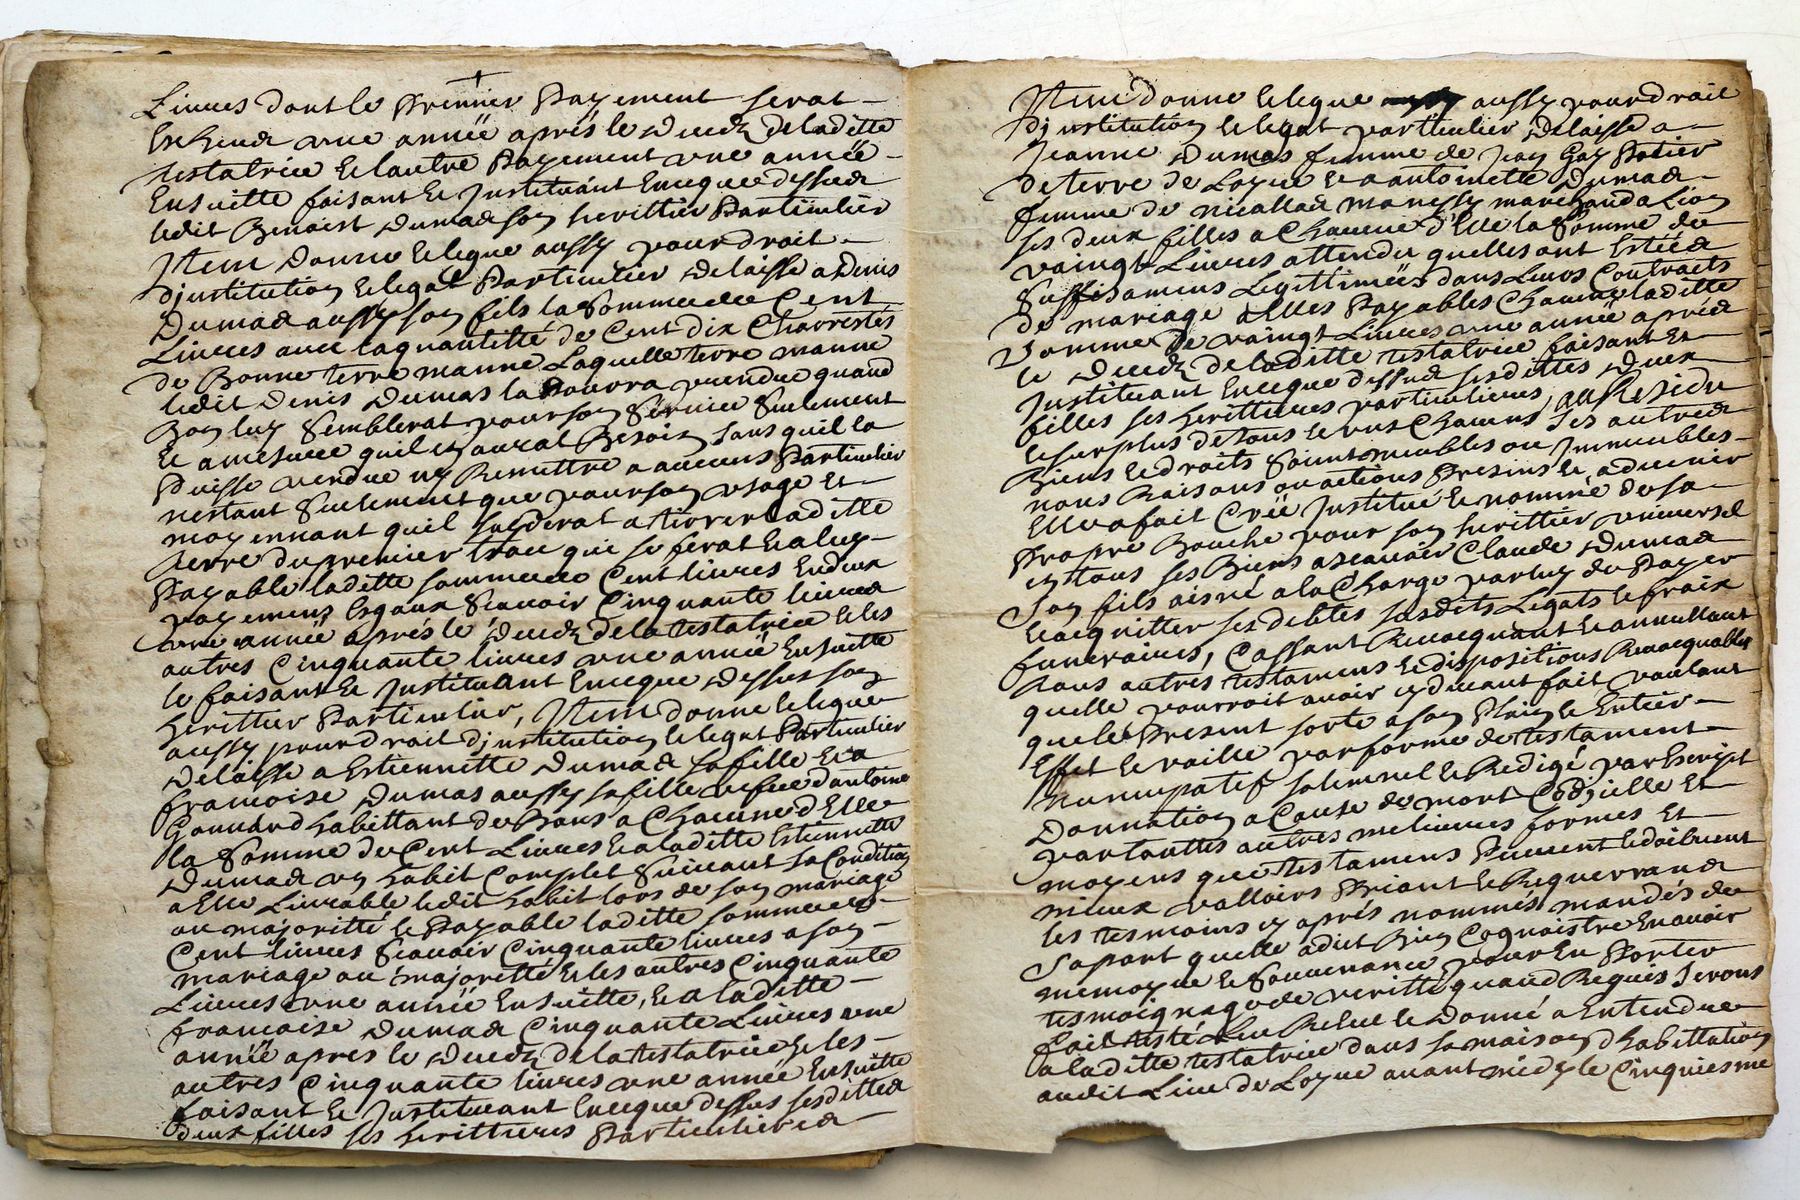 Livres dont le Premier Payement serat
Escheux une année aprés le Decedz de laditte
testatrice Et lautre Payement une année
Ensuitte faisant Et Jnstituant Encequedessus
ledit Benoist Dumas son herittier Particulier
Jtem Donne Et legue aussy pour droit
djnstitution Et legat Particulier Delaisse a Denis
Dumas aussy son fils la Somme de Cent
Livres avec laquantitté de Cent dix Charrestés
de Bonne terre manne Laquelle terre manne
ledit Denis Dumas la Pouvra prendre quand
Bon luy Semblerat pour son Service Seulement
Et amesure quil En aurat Besoin sans quil la
Puisse vendre ny Remettre a aucuns Particulier
nestant Seulement que pour son usage Et
moyennant quil a tirrer laditte
terre du premier trou qui se ferat Et aluy
Payable laditte somme de Cent livres En deux
payemens Esgaux Scavoir Cinquante livres
une année aprés le Decedz de la testatrice Et les
autres Cinquante livres une année Ensuitte
le faisant Et Jnstituant Enceque Dessus son
herittier Particulier, Jtem donne Et legue
aussy pour droit djnstitution Et legat Particulier
Delaisse a Estiennette Dumas sa fille Et a
francoise Dumas aussy sa fille vefve dantoine
Gonnard habittant de Bans a Chacune d'Elle
la Somme de Cent Livres Et a laditte Estiennette
Dumas un habit Complet Suivant sa Condition
a Elle Livrable ledit habit lors de son mariage
ou majoritté Et Payable laditte somme de
Cent livres Scavoir Cinquante livres a son
mariage ou majoretté Et les autres Cinquante
Livres une année Ensuitte, Et a laditte
francoise Dumas Cinquante Livres une
année apres le Decedz de la testatrice Et les
autres Cinquante livres une année Ensuitte
faisant Et Jnstituant Enceque dessus sesdittes
deux filles ses herittieres Particulieres
Jtem donne Et legue aussy pour droit
djnstitution Et legat particulier Delaisse a
Jeanne Dumas femme de Jean Gay Potier
de terre de Loyre Et a antoinette Dumas
femme de nicollas manissy marchand a Lion
ses deux filles a Chacune d'Elle la Somme de
vaingt Livres attendu quelles ont Estées
Suffisamens Legittimées dans Leurs Contracts
de mariage a Elles Payables Chacune laditte
Somme de vaingt Livres une année aprés
le Decedz de laditte testatrice faisant Et
Jnstituant Enceque dessus sesdittes deux
filles ses herittieres particulieres, au Residu
Et surplus de tous Et uns Chacuns Ses autres
Biens Et droits Soint meubles ou Jmmeubles
noms Raisons ou actions Presens Et advenir
Elle a fait Créé Jnstitué Et nommé de sa
Propre Bouche pour son herittier universel
En tous ses Biens ascavoir Claude Dumas
Son fils aisné a la Charge par luy de Payer
Et acquitter ses debtes sesdits Legats Et fraix
funeraires, Cassant Revocquant Et annullant
tous autres testamens Et dispositions Revocquables
quelle pourroit avoir cy devant fait voulant
que le Present sorte a son Plain Et Entier
Effet Et vaille par forme de testament
nuncupatif solemnel Et Redigé par Escript
Donnation a Cause de mort Codjcille Et
par touttes autres melieures formes Et
moyens que testamens Peuvent Et doibvent
mieux valloirs Priant Et Requerrand
les tesmoins cy aprés nommés mandés de
Sa part quelle adict Bien Cognoistre En avoir
memoyre Et Souvenance pour En Porter
tesmoignage de veritté quand Requis Serons
fait testé Leu Releu Et Donné a Entendre
a laditte testatrice dans sa maison dhabittation
audit Lieu de Loyre avant midy le Cinquiesme